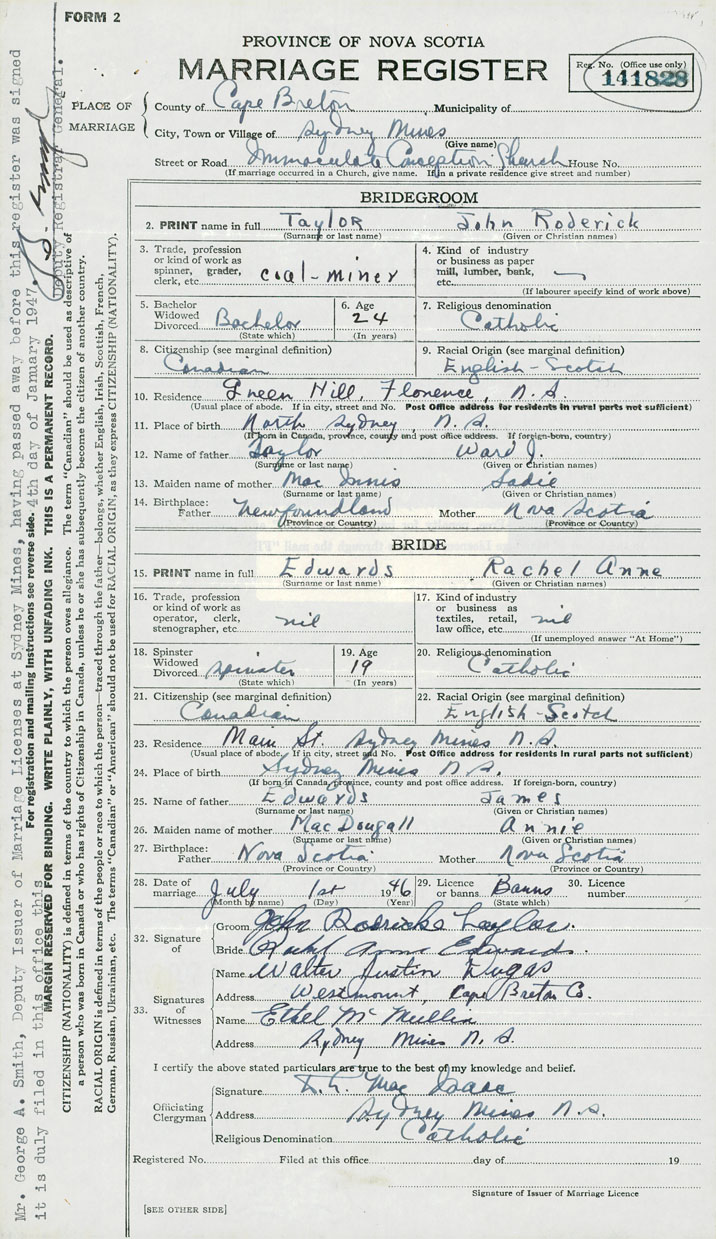 FORM 2
PROVINCE OF NOVA SCOTIA
MARRIAGE REGISTER
Reg. No. (Office use only)
141828
PLACE OF MARRIAGE
County of Cape Breton Municipality of
City, Town or Village of Sydney Mines
(Give name)
Street or Road Immaculate Conception Church House No.
(If marriage occurred in a Church, give name. If in a private residence give street and number)
BRIDEGROOM
2. PRINT name in full Taylor John Roderick
(Surname or last name) (Given or Christian names)
3. Trade, profession or kind of work as spinner, grader, clerk, etc. coal-miner
4. Kind of industry or business as paper mill, lumber, bank, etc.
(If labourer specify kind of work above)
5. Bachelor Widowed Divorced Bachelor
(State which)
6. Age 24
(In years)
7. Religious denomination
Catholic
8. Citizenship (see marginal definition)
Canadian
9. Racial Origin (see marginal definition)
English-Scotch
10. Residence Green Hill, Florence, N.S.
(Usual place of abode. If in city, street and No. Post Office address for residents in rural parts not sufficient)
11. Place of birth North Sydney, N.S.
(If born in Canada, province, county and post office address. If foreign-born, country)
12. Name of father Taylor Ward J.
(Surname or last name) (Given or Christian names)
13. Maiden name of mother Mac Innis Sadie
(Surname or last name) (Given or Christian names)
14. Birthplace: Father Newfoundland Mother Nova Scotia
(Province or Country) (Province or Country)
BRIDE
15. PRINT name in full Edwards Rachel Anne
(Surname or last name) (Given or Christian names)
16. Trade, profession or kind of work as operator, clerk, stenographer, etc. nil
17. Kind of industry or business as textiles, retail, law office, etc. nil
(If unemployed answer "At Home")
18. Spinster Widowed Divorced spinster
(State which)
19. Age 19
(In years)
20. Religious denomination
Catholic
21. Citizenship (see marginal definition)
Canadian
22. Racial Origin (see marginal definition)
English-Scotch
23. Residence Main St. Sydney Mines N.S.
(Usual place of abode. If in city, street and No. Post Office address for residents in rural parts not sufficient)
24. Place of birth Sydney Mines N.S.
(If born in Canada, province, county and post office address. If foreign-born, country)
25. Name of father Edwards James
(Surname or last name) (Given or Christian names)
26. Maiden name of mother MacDougall Annie
(Surname or last name) (Given or Christian names)
27. Birthplace: Father Nova Scotia Mother Nova Scotia
(Province or Country) (Province or Country)
28. Date of marriage July 1st 1946
(Month by name) (Day) (Year)
29. Licence or banns Banns
(State which)
30. Licence number
32. Signature of
Groom John Rodricke Taylor
Bride Rachel Anne Edwards
33. Signatures of Witnesses
Name Walter Justin Dugas
Address Westmount, Cape Breton Co.
Name Ethel McMullin
Address Sydney Mines N.S.
I certify the above stated particulars are true to the best of my knowledge and belief.
Officiating Clergyman
Signature Mac Isaac
Address Sydney Mines N.S.
Religious Denomination Catholic
Registered No. Filed at this office day of 19
Signature of Issuer of Marriage Licence
[SEE OTHER SIDE]
Mr. George A. Smith, Deputy Issuer of Marriage Licenses at Sydney Mines, having passed away before this register was signed
For registration and mailing instructions see reverse side.
it is duly filed in this office this 4th day of January 1947.
Deputy Registrar General.
MARGIN RESERVED FOR BINDING. WRITE PLAINLY, WITH UNFADING INK. THIS IS A PERMANENT RECORD.
CITIZENSHIP (NATIONALITY) is defined in terms of the country to which the person owes allegiance. The term "Canadian" should be used as descriptive of
a person who was born in Canada or who has rights of Citizenship in Canada, unless he or she has subsequently become the citizen of another country.
RACIAL ORIGIN is defined in terms of the people or race to which the person—traced through the father—belongs, whether English, Irish, Scottish, French,
German, Russian, Ukrainian, etc. The terms "Canadian" or "American" should not be used for RACIAL ORIGIN, as they express CITIZENSHIP (NATIONALITY).